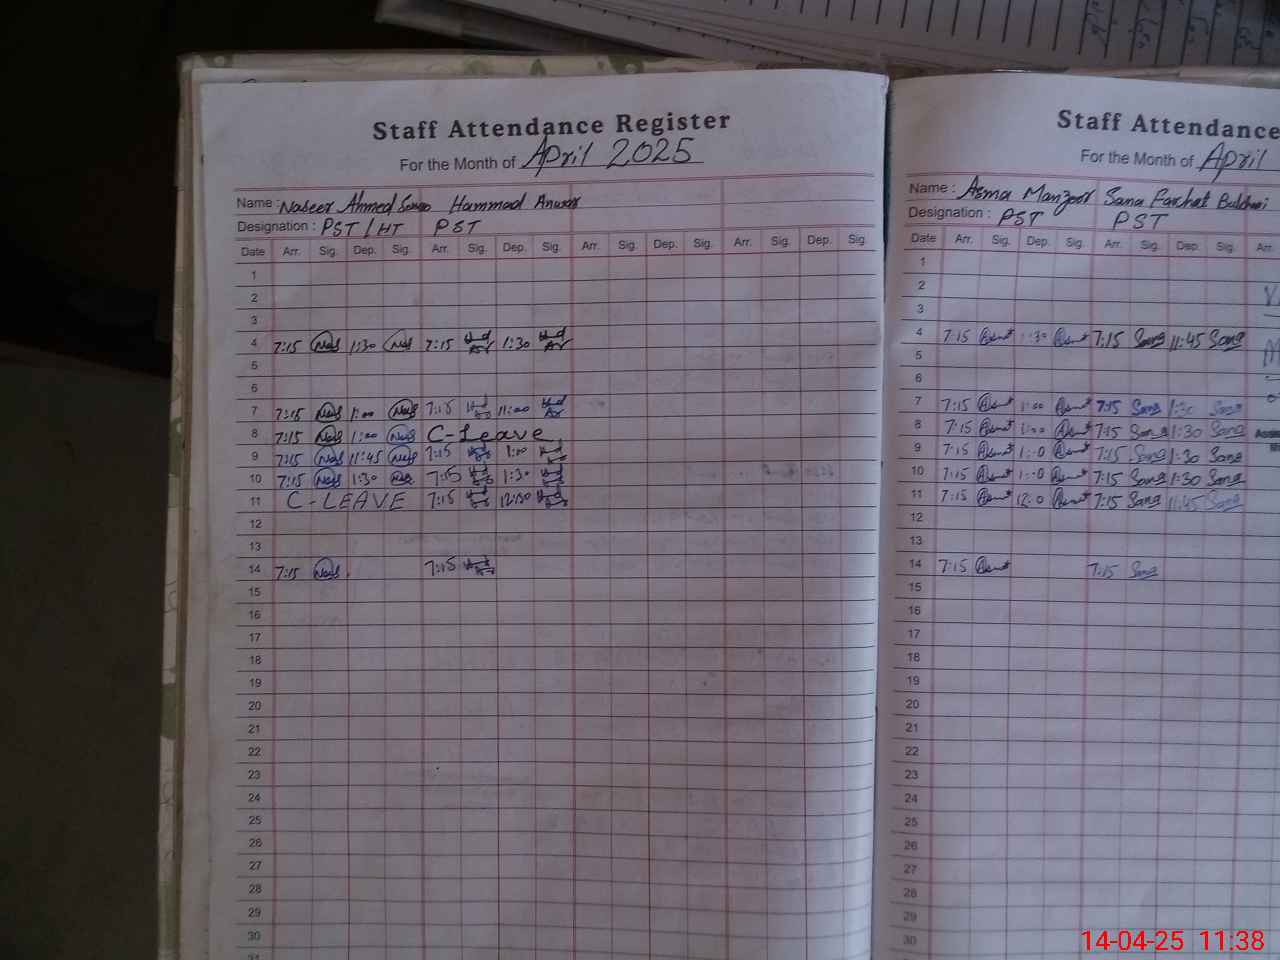 Staff Attendance Register
For the Month of April 2025
Name : Naseer Ahmed Hammad Anwar
Designation : PST / HT PST
Date Arr. Sig. Dep. Sig. Arr. Sig. Dep. Sig. Arr. Sig. Dep. Sig. Arr. Sig. Dep. Sig.
1
2
3
4 7:15 Nas 1:30 Nas 7:15 1:30
5
6
7 7:15 Nas 1:00 Nas 7:15 11:00
8 7:15 Nas 1:00 Nas C-Leave
9 7:15 Nas 11:45 Nas 7:15 1:00
10 7:15 Nas 1:30 Nas 7:15 1:30
11 C-LEAVE 7:15 12:30
12
13
14 7:15 Nas 7:15
15
16
17
18
19
20
21
22
23
24
25
26
27
28
29
30
Staff Attendance
For the Month of April
Name : Asma Manzoor Sana Farhat Bukhari
Designation : PST PST
Date Arr. Sig. Dep. Sig. Arr. Sig. Dep. Sig. Arr.
1
2
3
4 7:15 Asmt 1:30 Asmt 7:15 Sana 11:45 Sana
5
6
7 7:15 Asmt 1:00 Asmt 7:15 Sana 1:30 Sana
8 7:15 Asmt 1:00 Asmt 7:15 Sana 1:30 Sana
9 7:15 Asmt Asmt 7:15 Sana 1:30 Sana
10 7:15 Asmt Asmt 7:15 Sana 1:30 Sana
11 7:15 Asmt Asmt 7:15 Sana 11:45 Sana
12
13
14 7:15 Asmt 7:15 Sana
15
16
17
18
19
20
21
22
23
24
25
26
27
28
29
30
14-04-25 11:38